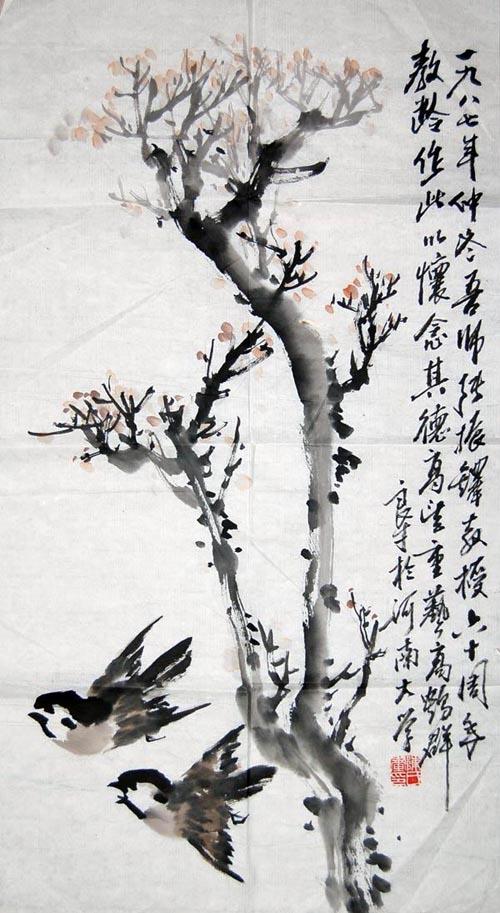 一九八七年仲冬吾师张振铎教授六十周年
教龄作此以怀念其德高望重艺高鹤群
良才於河南大学